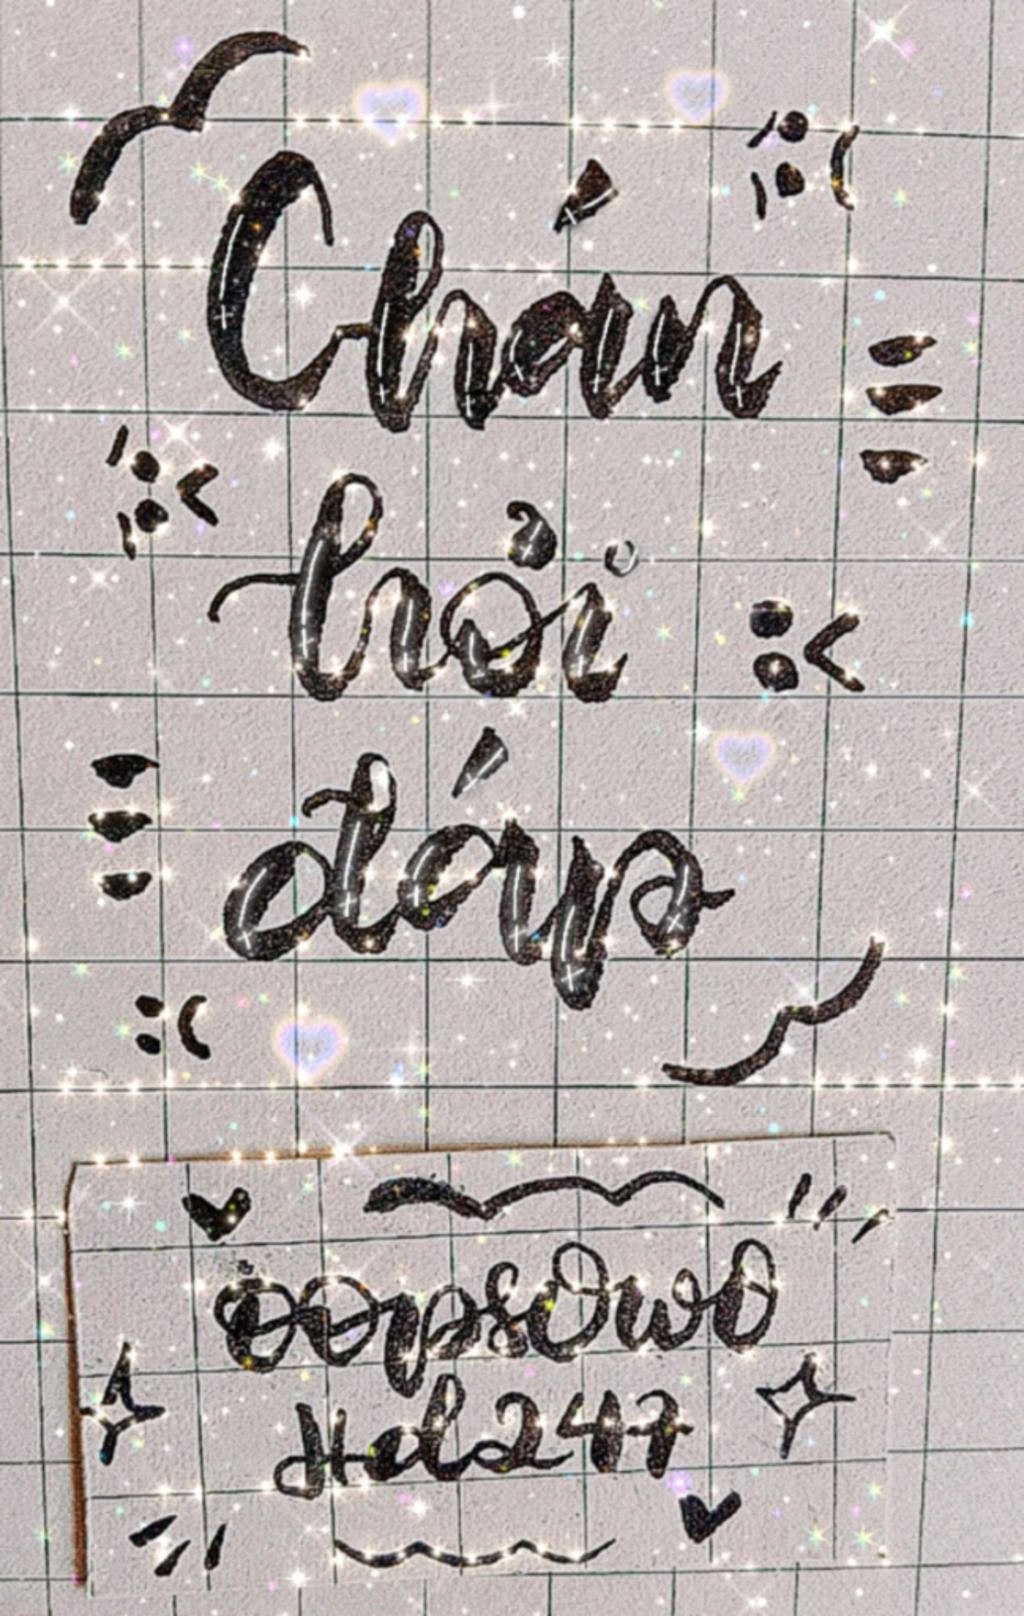 Chán
hỏi
đáp
oopsOwO
Hd247